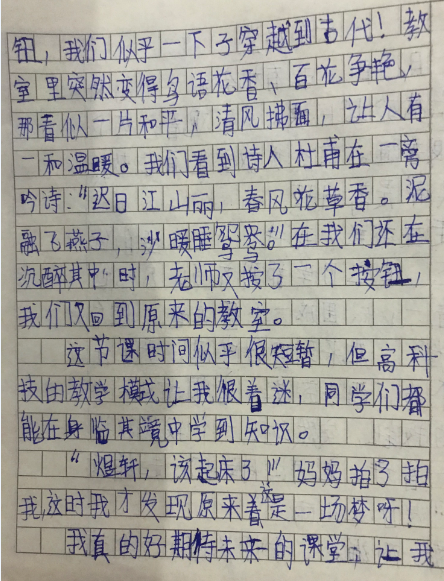 钮，我们似乎一下子穿越到古代！教
室里突然变得鸟语花香、百花争艳，
那着似一片和平，清风拂面，让人有
一和温暖。我们看到诗人杜甫在一离
吟诗：“迟日江山丽，春风花草香。泥
融飞燕子，沙暖睡鸳鸯。”在我们还在
沉醉其中时，老师又按了一个按钮，
我们又回到原来的教室。
这节课时间似乎很短暂，但高科
技由教学模式让我很着迷，同学们都
能在身临其境中学到知识。
“煜轩，该起床了！”妈妈拍了拍
我，这时我才发现原来着这是一场梦呀！
我真的好期待未来的课堂，让我